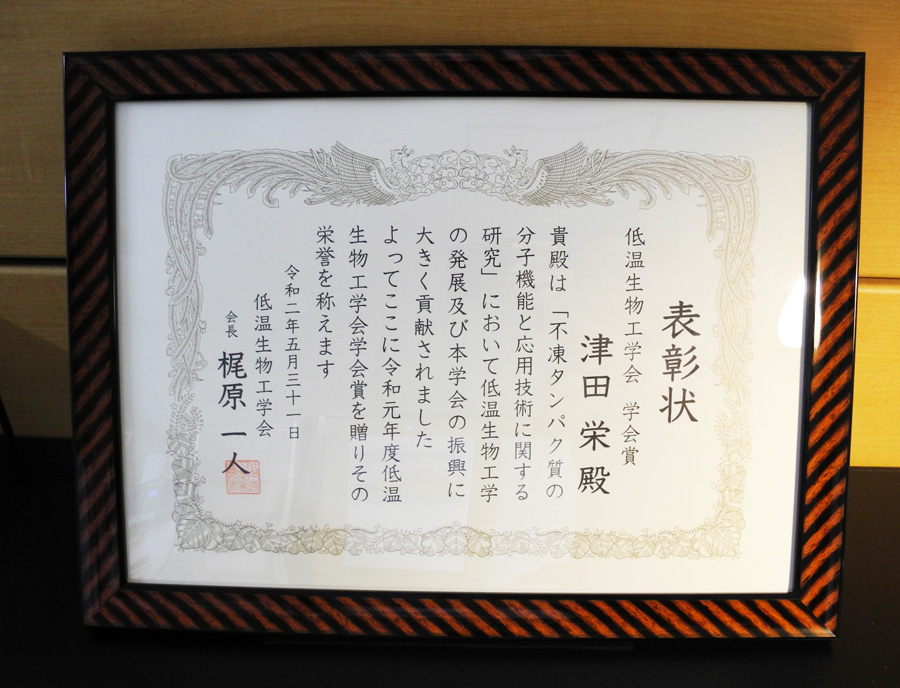 表彰状
低温生物工学会 学会賞
津田 栄 殿
貴殿は「不凍タンパク質の
分子機能と応用技術に関する
研究」において低温生物工学
の発展及び本学会の振興に
大きく貢献されました
よってここに令和元年度低温
生物工学会学会賞を贈りその
栄誉を称えます
令和二年五月三十一日
低温生物工学会
会長 梶原 一人